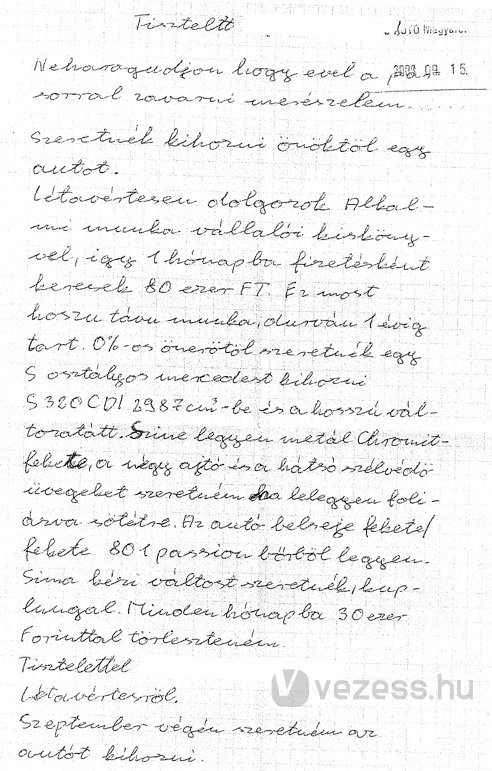 Tisztelt
Autó Magyar
Neharagudjon hogy evel a pár
2008. 09. 15.
sorral zavarni merészelem.
Szeretnék kihozni önöktöl egy
autot.
Létavértesen dolgozok Alkal-
mi munka vállalói kiskönyv-
vel, igy 1 hónapba fizetésként
keresek 80 ezer FT. Ez most
hoszu távu munka, durván 1 évig
tart. 0%-os önerötöl szeretnék egy
S osztályos mercedest kihozni
S 320 CDI 2987 cm³-be és a hosszú vál-
tozatátt. Szine legyen metál Chromit-
fekete, a négy ajtó és a hátsó szélvédö
üvegeket szeretném ha lelegyen foli-
ázva sötétre. Az autó belseje fekete/
fekete 801 passion börböl legyen.
Sima kézi váltost szeretnék, kup-
lunggal. Minden hónapba 30 ezer
Forinttal törleszteném.
Tisztelettel
Létavértesröl.
Szeptember végén szeretném az
autót kihozni.
vezess.hu